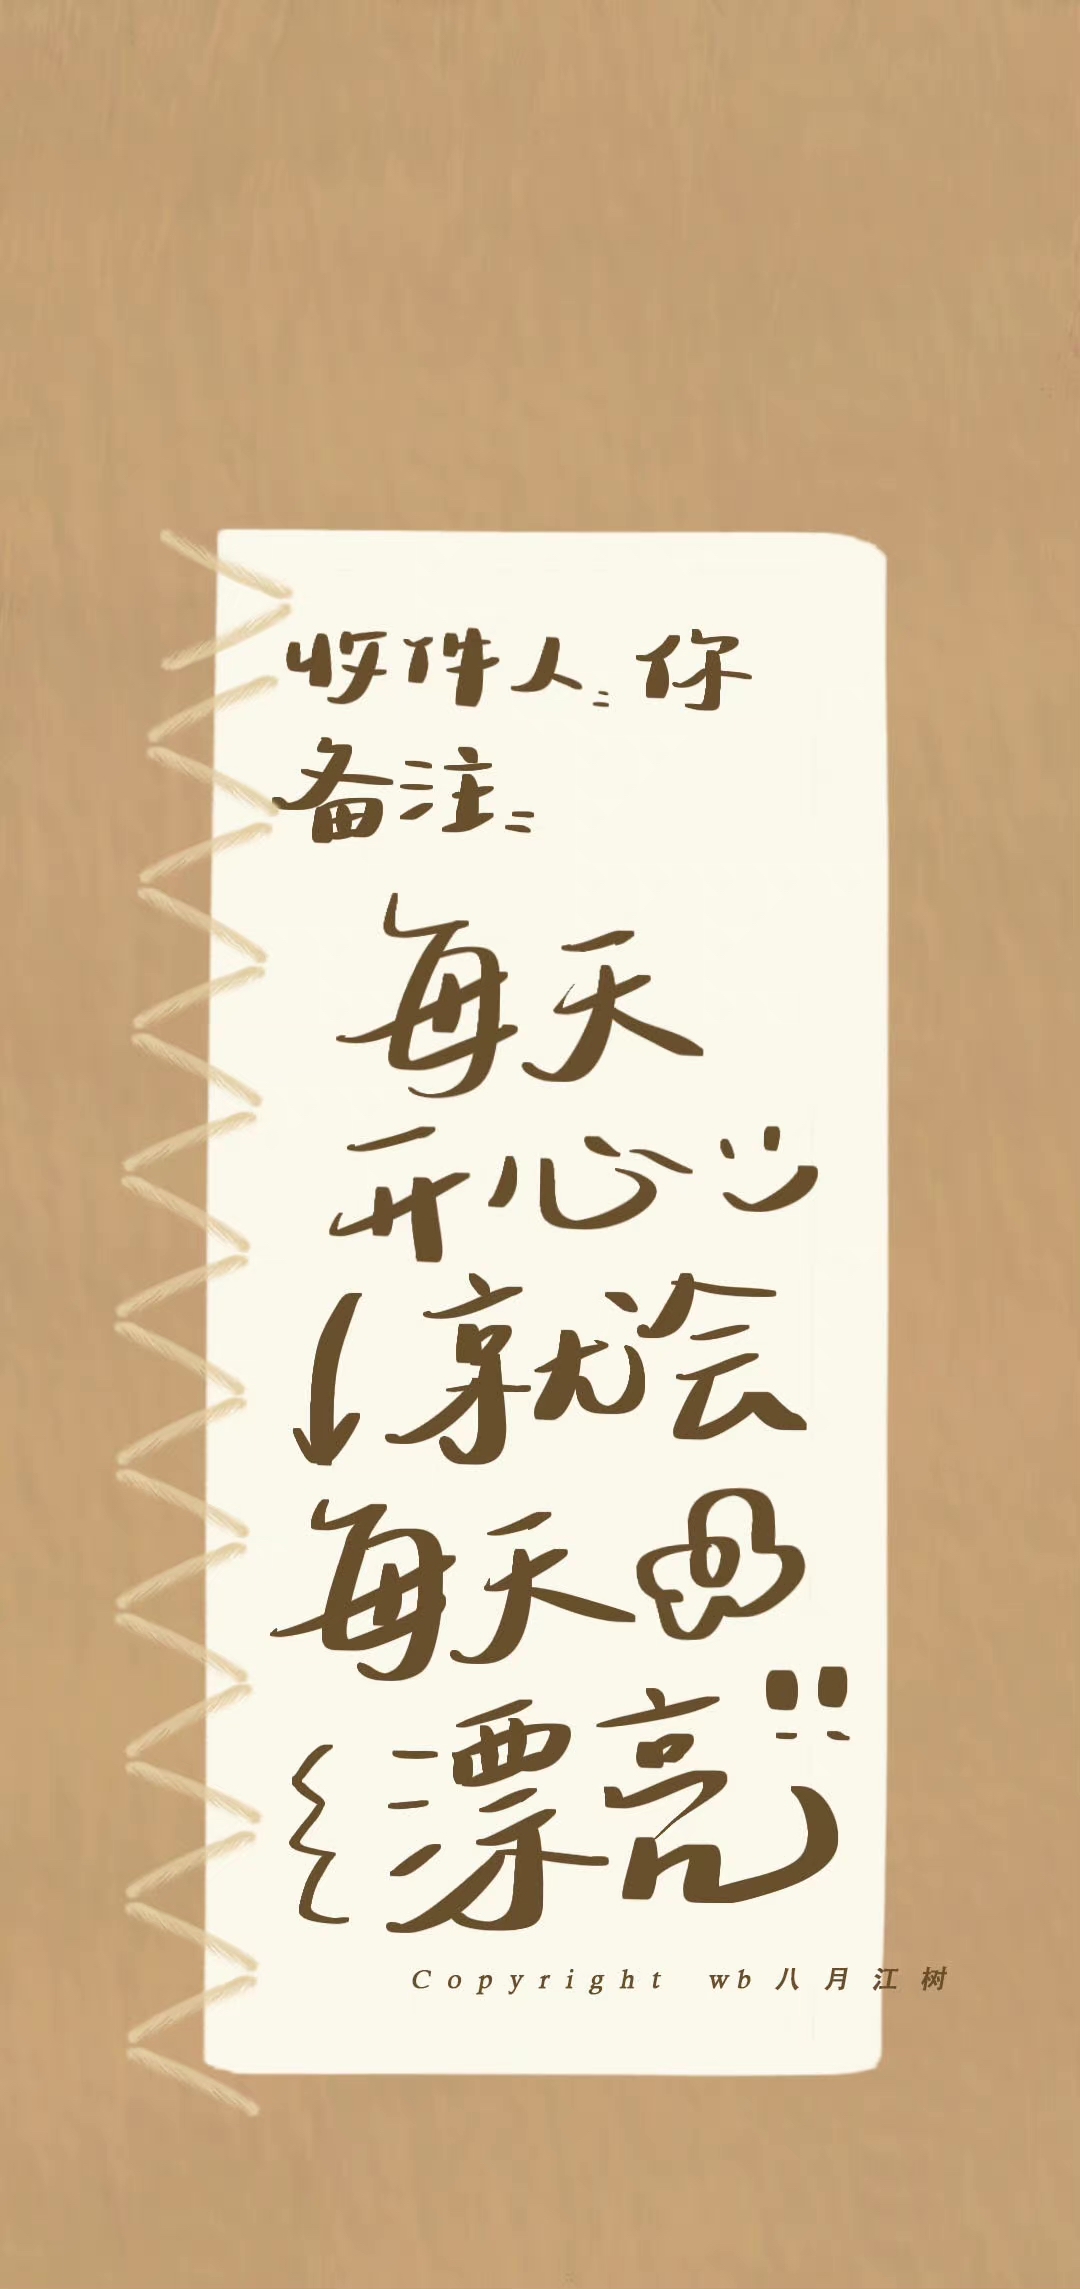 收件人:你
备注:
每天
开心
就会
每天
漂亮
Copyright wb八月江树